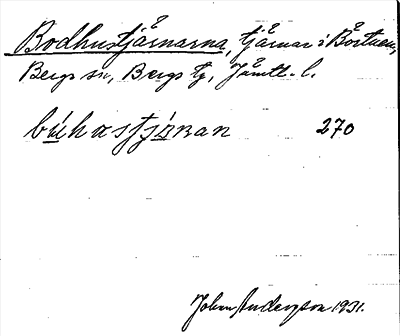 Bodhustjärnarna, tjärnar i Börtnen,
Bergs sn, Bergs tg, Jämtl. l.
búhɑstjɑ̈ṇan 270
Johan Anderson 1931.